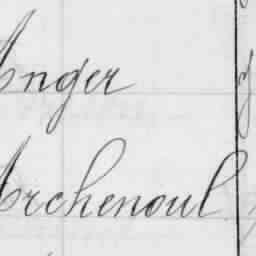 Anger
Archenoul